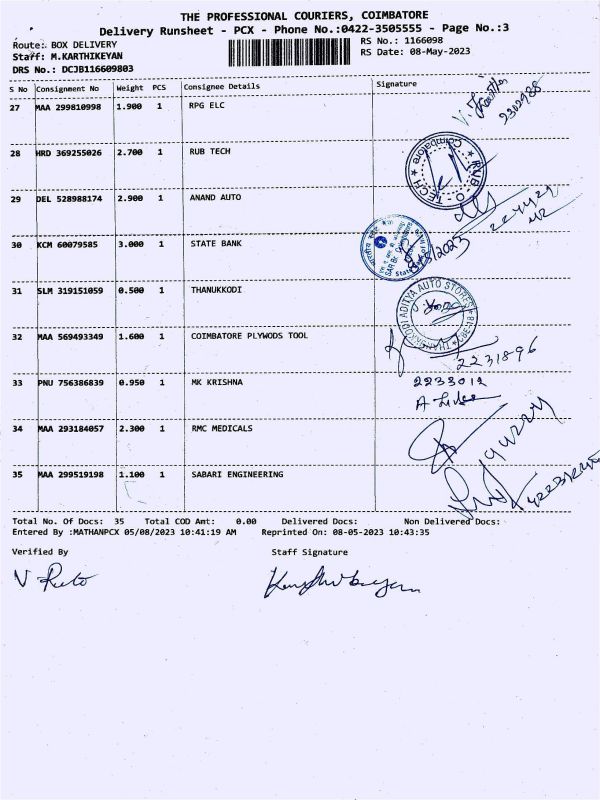 THE PROFESSIONAL COURIERS, COIMBATORE
Delivery Runsheet - PCX - Phone No.:0422-3505555 - Page No.:3
Route: BOX DELIVERY
RS No.: 1166098
Staff: M.KARTHIKEYAN
RS Date: 08-May-2023
DRS No.: DCJB116609803
S No Consignment No Weight PCS Consignee Details Signature
27 MAA 299810998 1.900 1 RPG ELC
2302988
28 HRD 369255026 2.700 1 RUB TECH
RUB-O-TECH Coimbatore
29 DEL 528988174 2.900 1 ANAND AUTO
30 KCM 60079585 3.000 1 STATE BANK
31 SLM 319151059 0.500 1 THANUKKODI
ADITYA AUTO STORES
32 MAA 569493349 1.600 1 COIMBATORE PLYWODS TOOL
2231896
33 PNU 756386839 0.950 1 MK KRISHNA
34 MAA 293184057 2.300 1 RMC MEDICALS
35 MAA 299519198 1.100 1 SABARI ENGINEERING
Total No. Of Docs: 35 Total COD Amt: 0.00 Delivered Docs: Non Delivered Docs:
Entered By :MATHANPCX 05/08/2023 10:41:19 AM Reprinted On: 08-05-2023 10:43:35
Verified By Staff Signature